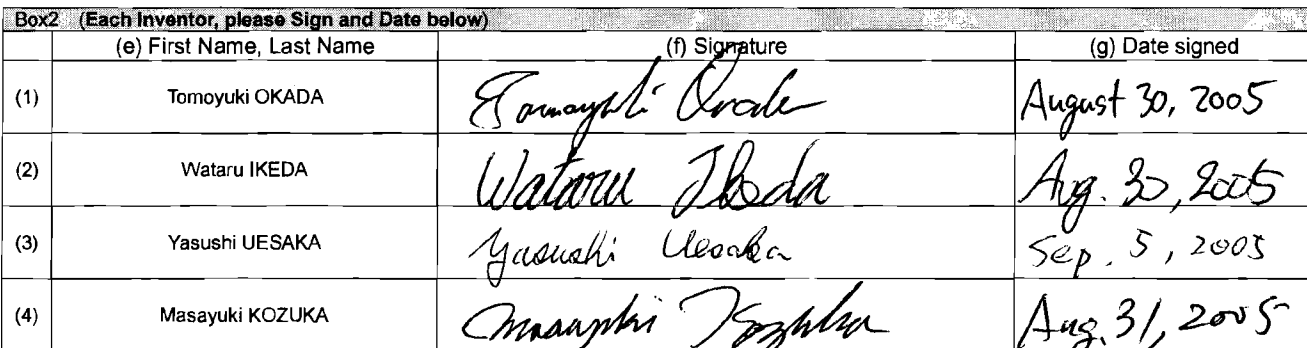 Box2 (Each Inventor, please Sign and Date below)
(e) First Name, Last Name (f) Signature (g) Date signed
(1) Tomoyuki OKADA Tomoyuki Okada August 30, 2005
(2) Wataru IKEDA Wataru Ikeda Aug. 30, 2005
(3) Yasushi UESAKA Yasushi Uesaka Sep. 5, 2005
(4) Masayuki KOZUKA Masayuki Kozuka Aug. 31, 2005